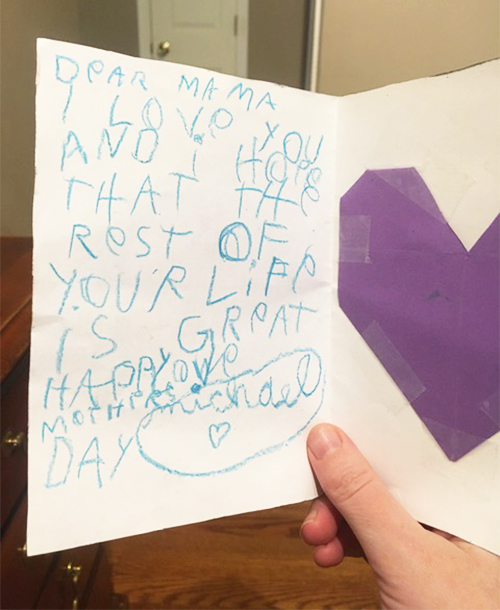 DeAR MAMA
I LOVe YOU
AND i HOPe
THAT THe
ReST OF
YOUR LiFe
IS GReAT
HAPPY
MOTHERS
DAY
LOVe
michael